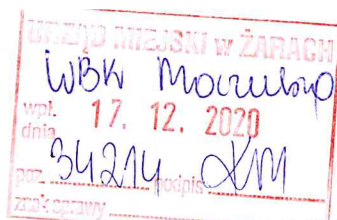 URZĄD MIEJSKI W ŻARACH
WBK
wpł. dnia 17. 12. 2020
poz 34214 podpis
znak sprawy